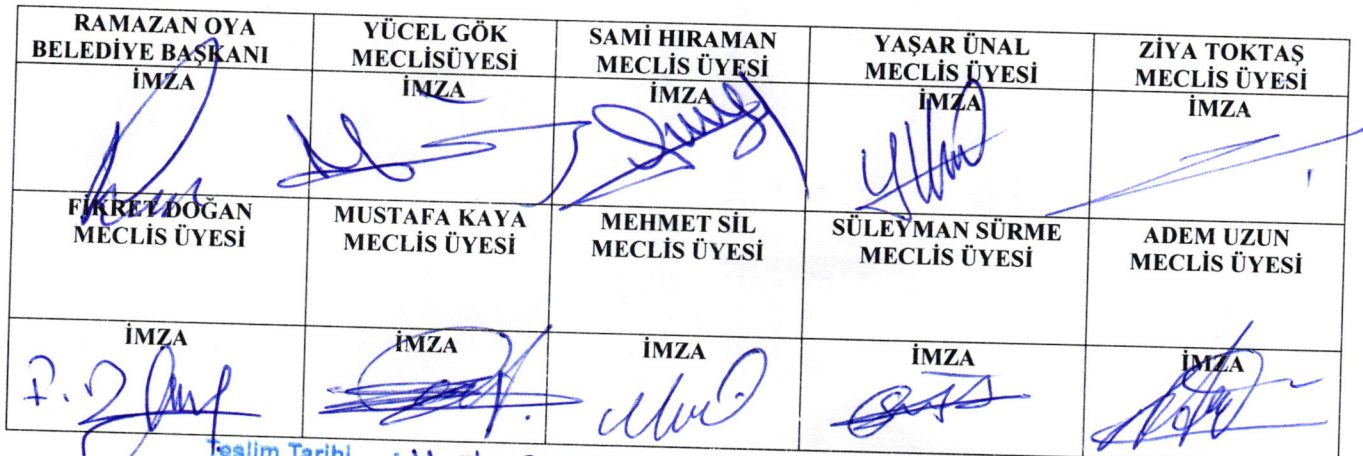 RAMAZAN OYA
BELEDİYE BAŞKANI
YÜCEL GÖK
MECLİSÜYESİ
SAMİ HIRAMAN
MECLİS ÜYESİ
YAŞAR ÜNAL
MECLİS ÜYESİ
ZİYA TOKTAŞ
MECLİS ÜYESİ
İMZA
İMZA
İMZA
İMZA
İMZA
FİKRET DOĞAN
MECLİS ÜYESİ
MUSTAFA KAYA
MECLİS ÜYESİ
MEHMET SİL
MECLİS ÜYESİ
SÜLEYMAN SÜRME
MECLİS ÜYESİ
ADEM UZUN
MECLİS ÜYESİ
İMZA
İMZA
İMZA
İMZA
İMZA
Teslim Tarihi